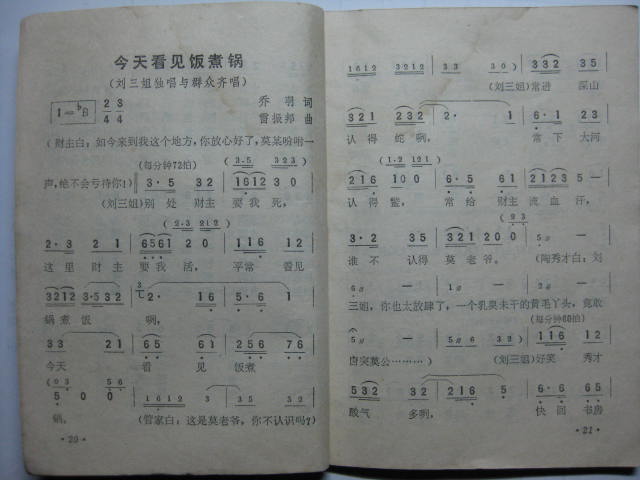 今天看见饭煮锅
(刘三姐独唱与群众齐唱)
1=♭B 2/4 3/4
乔羽 词
雷振邦 曲
(财主白：如今来到我这个地方，你放心好了，莫某吩咐一
(每分钟72拍) (3·5 323)
声，绝不会亏待你！) 3·5 32 1612 30
(刘三姐)别处 财主 要我死，
(2·3 212)
2·3 21 6561 20 116 12
这里 财主 要我 活， 平常 看见
3212 3·532 2· 1216 5·61
锅煮 饭 咧，
33 21 65 61 256 76
今天 看 见 饭煮
(23 56)
5 0 0 1612 3 33 3212
锅。 (管家白：这是莫老爷，你不认识吗？)
·20·
1612 3212 33 (30) 332 35
(刘三姐)常进 深山
321 21 2· 0 332 12
认得 蛇咧， 常下 大河
(1·2 121)
216 100 65 612 235 1—
认得 鳖， 常给 财主 流血 汗，
(23)
3·2 35 321 200 5 —
谁不 认得 莫老爷。 (陶秀才白：刘
6 — 2 — 1 — 6 —
三姐，你也太放肆了，一个乳臭未干的黄毛丫头，竟敢
(每分钟60拍)
5 — 5 — 566 32
唐突莫公………) (刘三姐)好笑 秀才
532 216 2· 0 116 65
酸气 多咧， 快回 书房
·21·